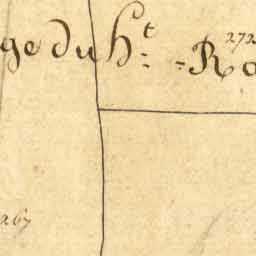 272
ge du h.t = Ro
267